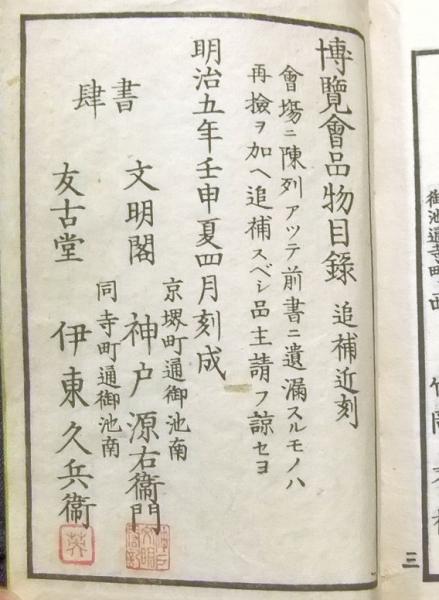 博覽會品物目錄 追補近刻
會塲ニ陳列アツテ前書ニ遺漏スルモノハ
再撿ヲ加ヘ追補スベシ品主請フ諒セヨ
明治五年壬申夏四月刻成
書肆
京堺町通御池南
文明閣 神戸源右衞門
同寺町通御池南
友古堂 伊東久兵衞
三
御池通寺町